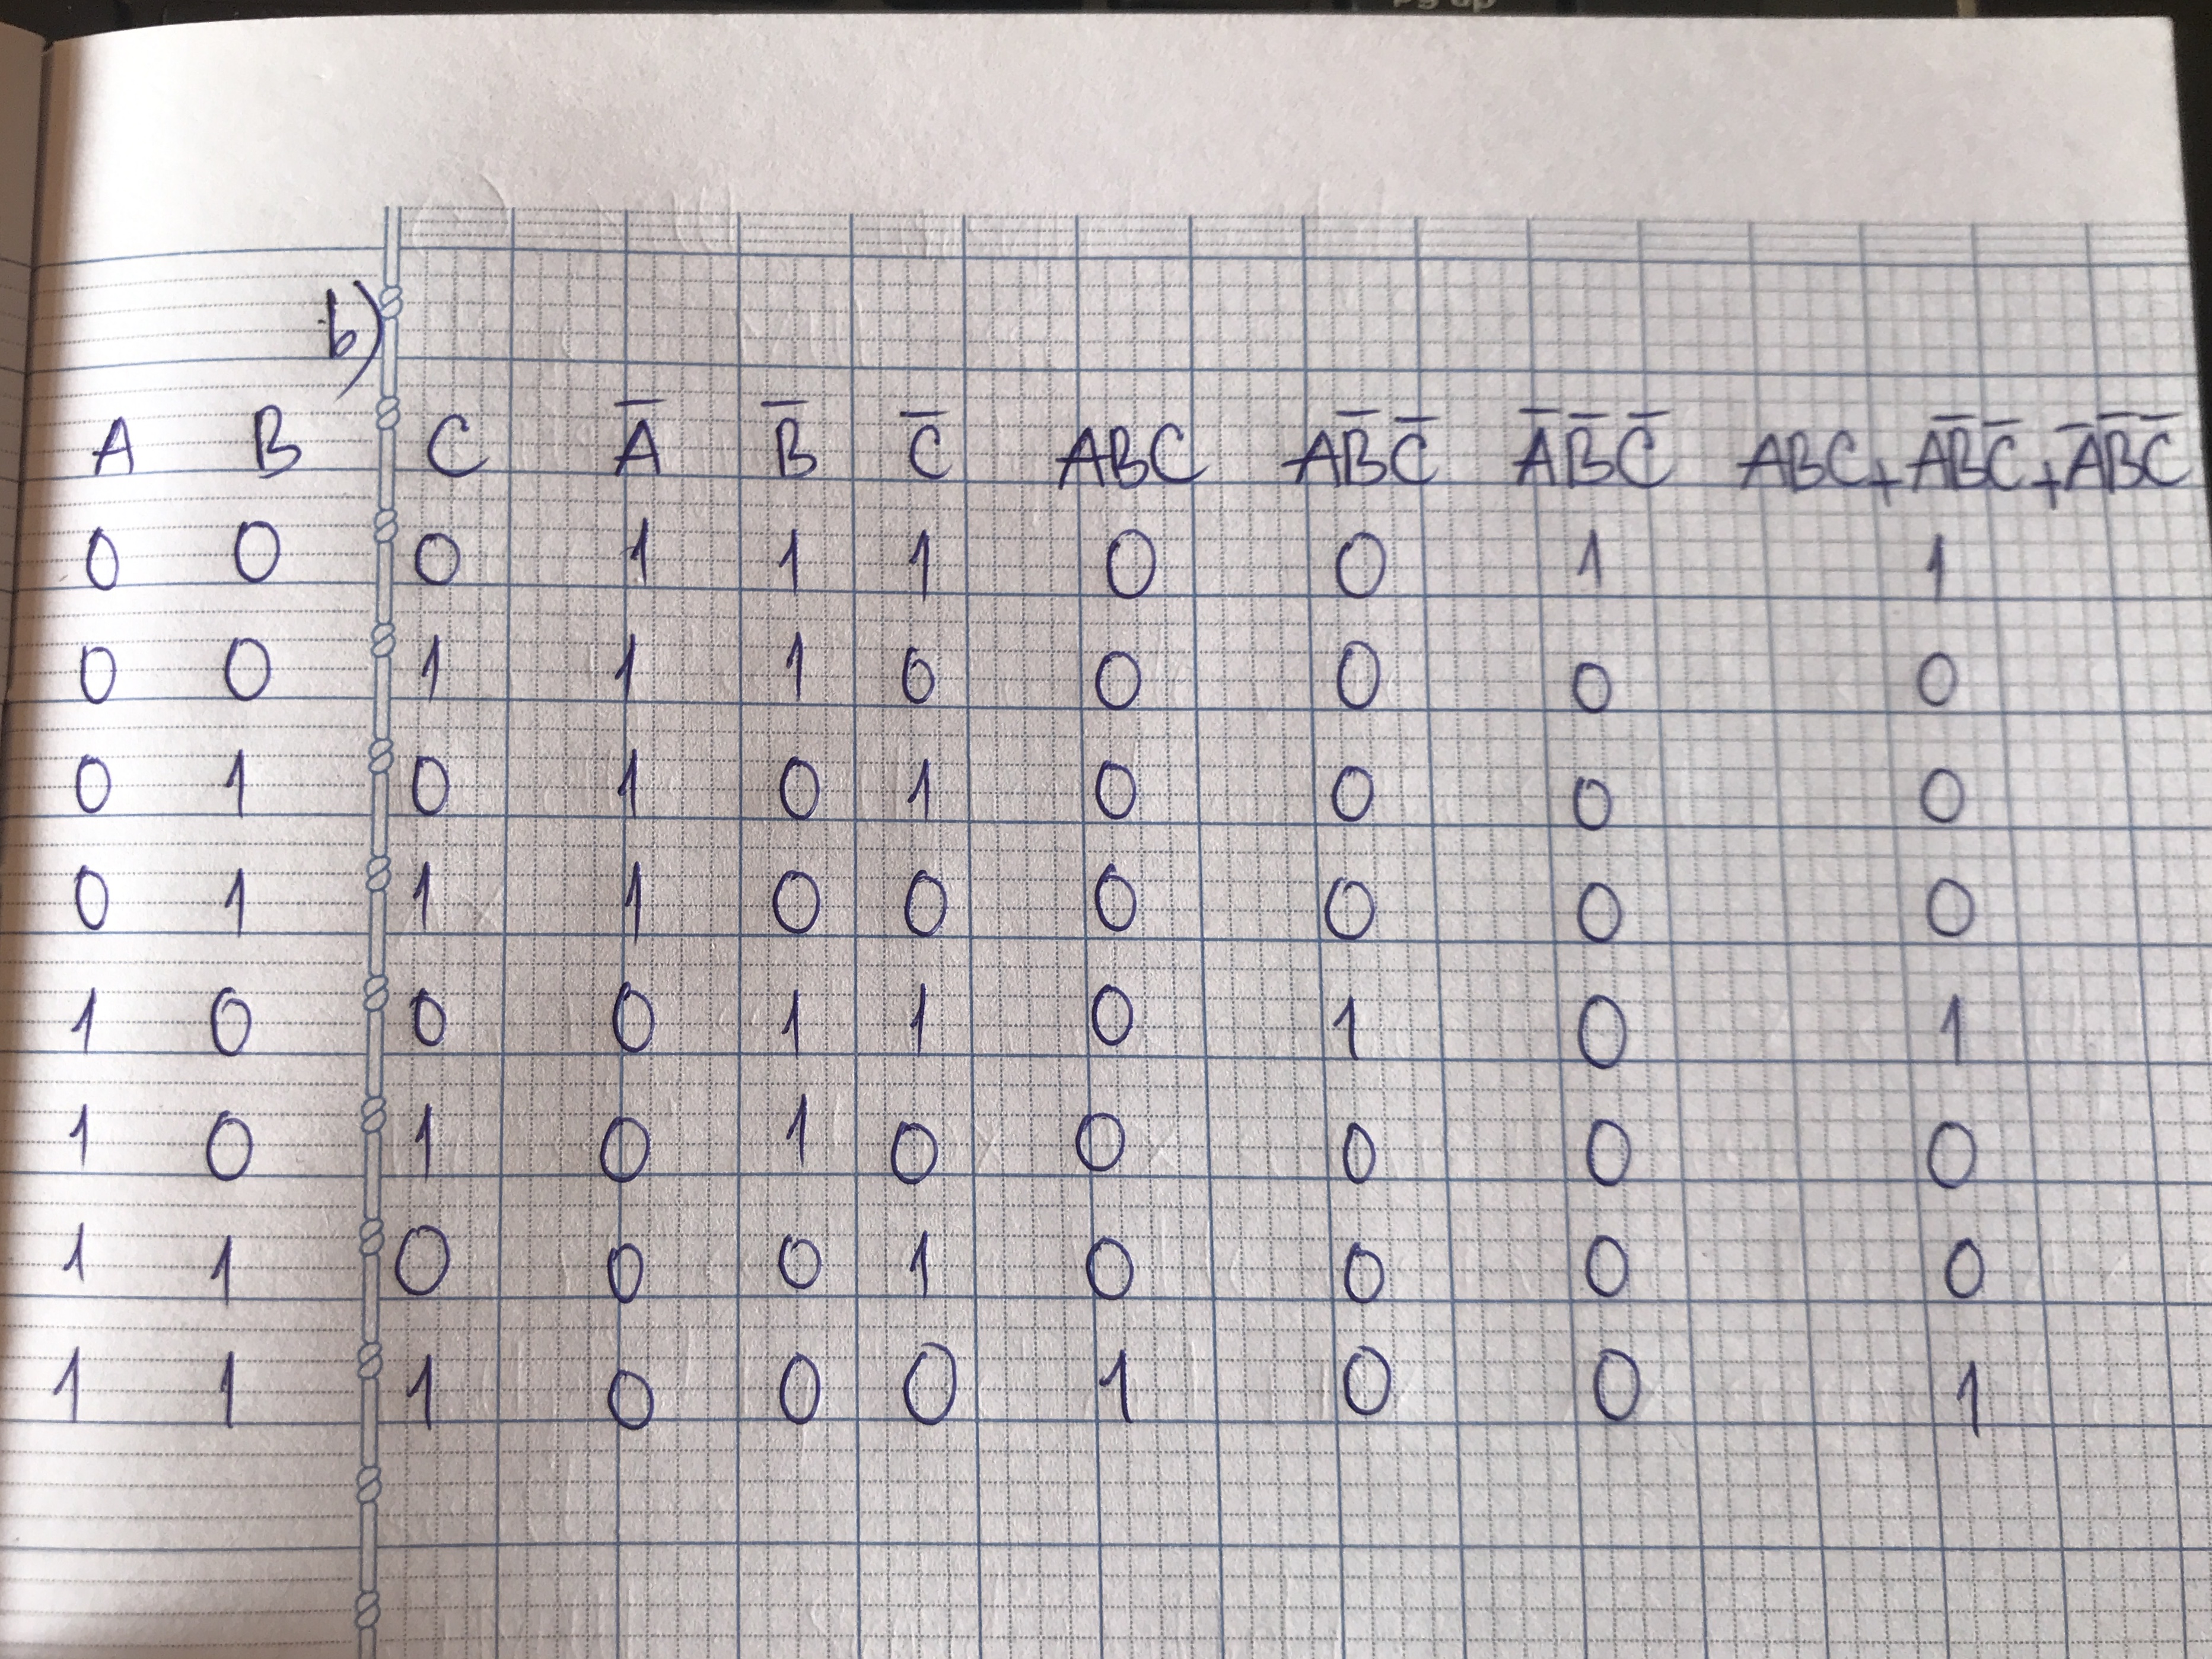 Pg up
b)
A B C A̅ B̅ C̅ ABC AB̅C̅ A̅B̅C̅ ABC+AB̅C̅+A̅B̅C̅
0 0 0 1 1 1 0 0 1 1
0 0 1 1 1 0 0 0 0 0
0 1 0 1 0 1 0 0 0 0
0 1 1 1 0 0 0 0 0 0
1 0 0 0 1 1 0 1 0 1
1 0 1 0 1 0 0 0 0 0
1 1 0 0 0 1 0 0 0 0
1 1 1 0 0 0 1 0 0 1